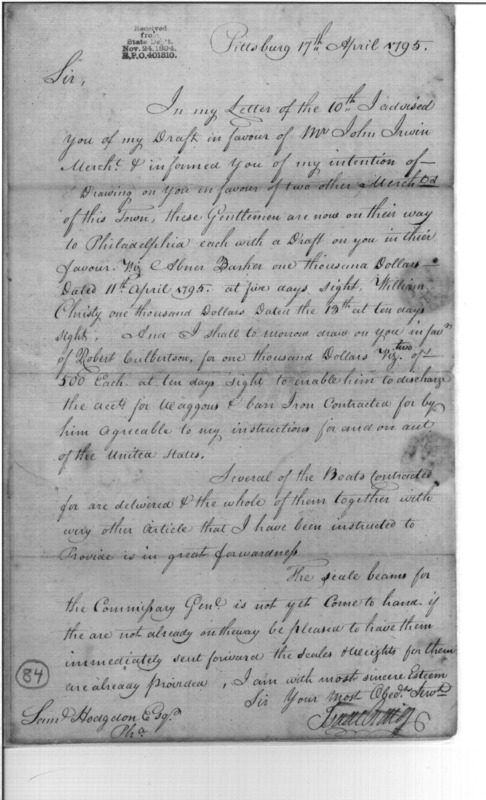 Received
from
State Dep't.
Nov. 24, 1894.
R.P.O. 401810.
Pittsburg 17th April 1795.
Sir,
In my Letter of the 10th I advised
you of my Draft in favour of Mr John Irwin
Mercht. & informed you of my intention of
Drawing on You in favour of two other Merchts
of this Town, these Gentlemen are now on their way
to Philadelphia each with a Draft on you in their
favour. Viz Abner Barker one thousand Dollars
Dated 11th April 1795. at five days sight. William
Christy one thousand Dollars Dated the 13th at ten days
sight. And I shall to morrow draw on You in favr.
of Robert Culbertson, for one thousand Dollars Viz. two of
500 Each at ten days sight to enable him to discharge
the accts for Waggons & barr Iron Contracted for by
him agreeable to my instructions for and on acct.
of the United States.
Several of the Boats Contracted
for are delivered & the whole of them together with
every other Article that I have been instructed to
Provide is in great forwardness
The scale beams for
the Commissary Genl. is not yet Come to hand. if
the are not already on the way be pleased to have them
immediately sent forward the scales & weights for them
are already provided, I am with most sincere Esteem
Sir Your Most Obedt. Servt.
Isaac Craig
84
Saml. Hodgdon Esqr.
Pha.